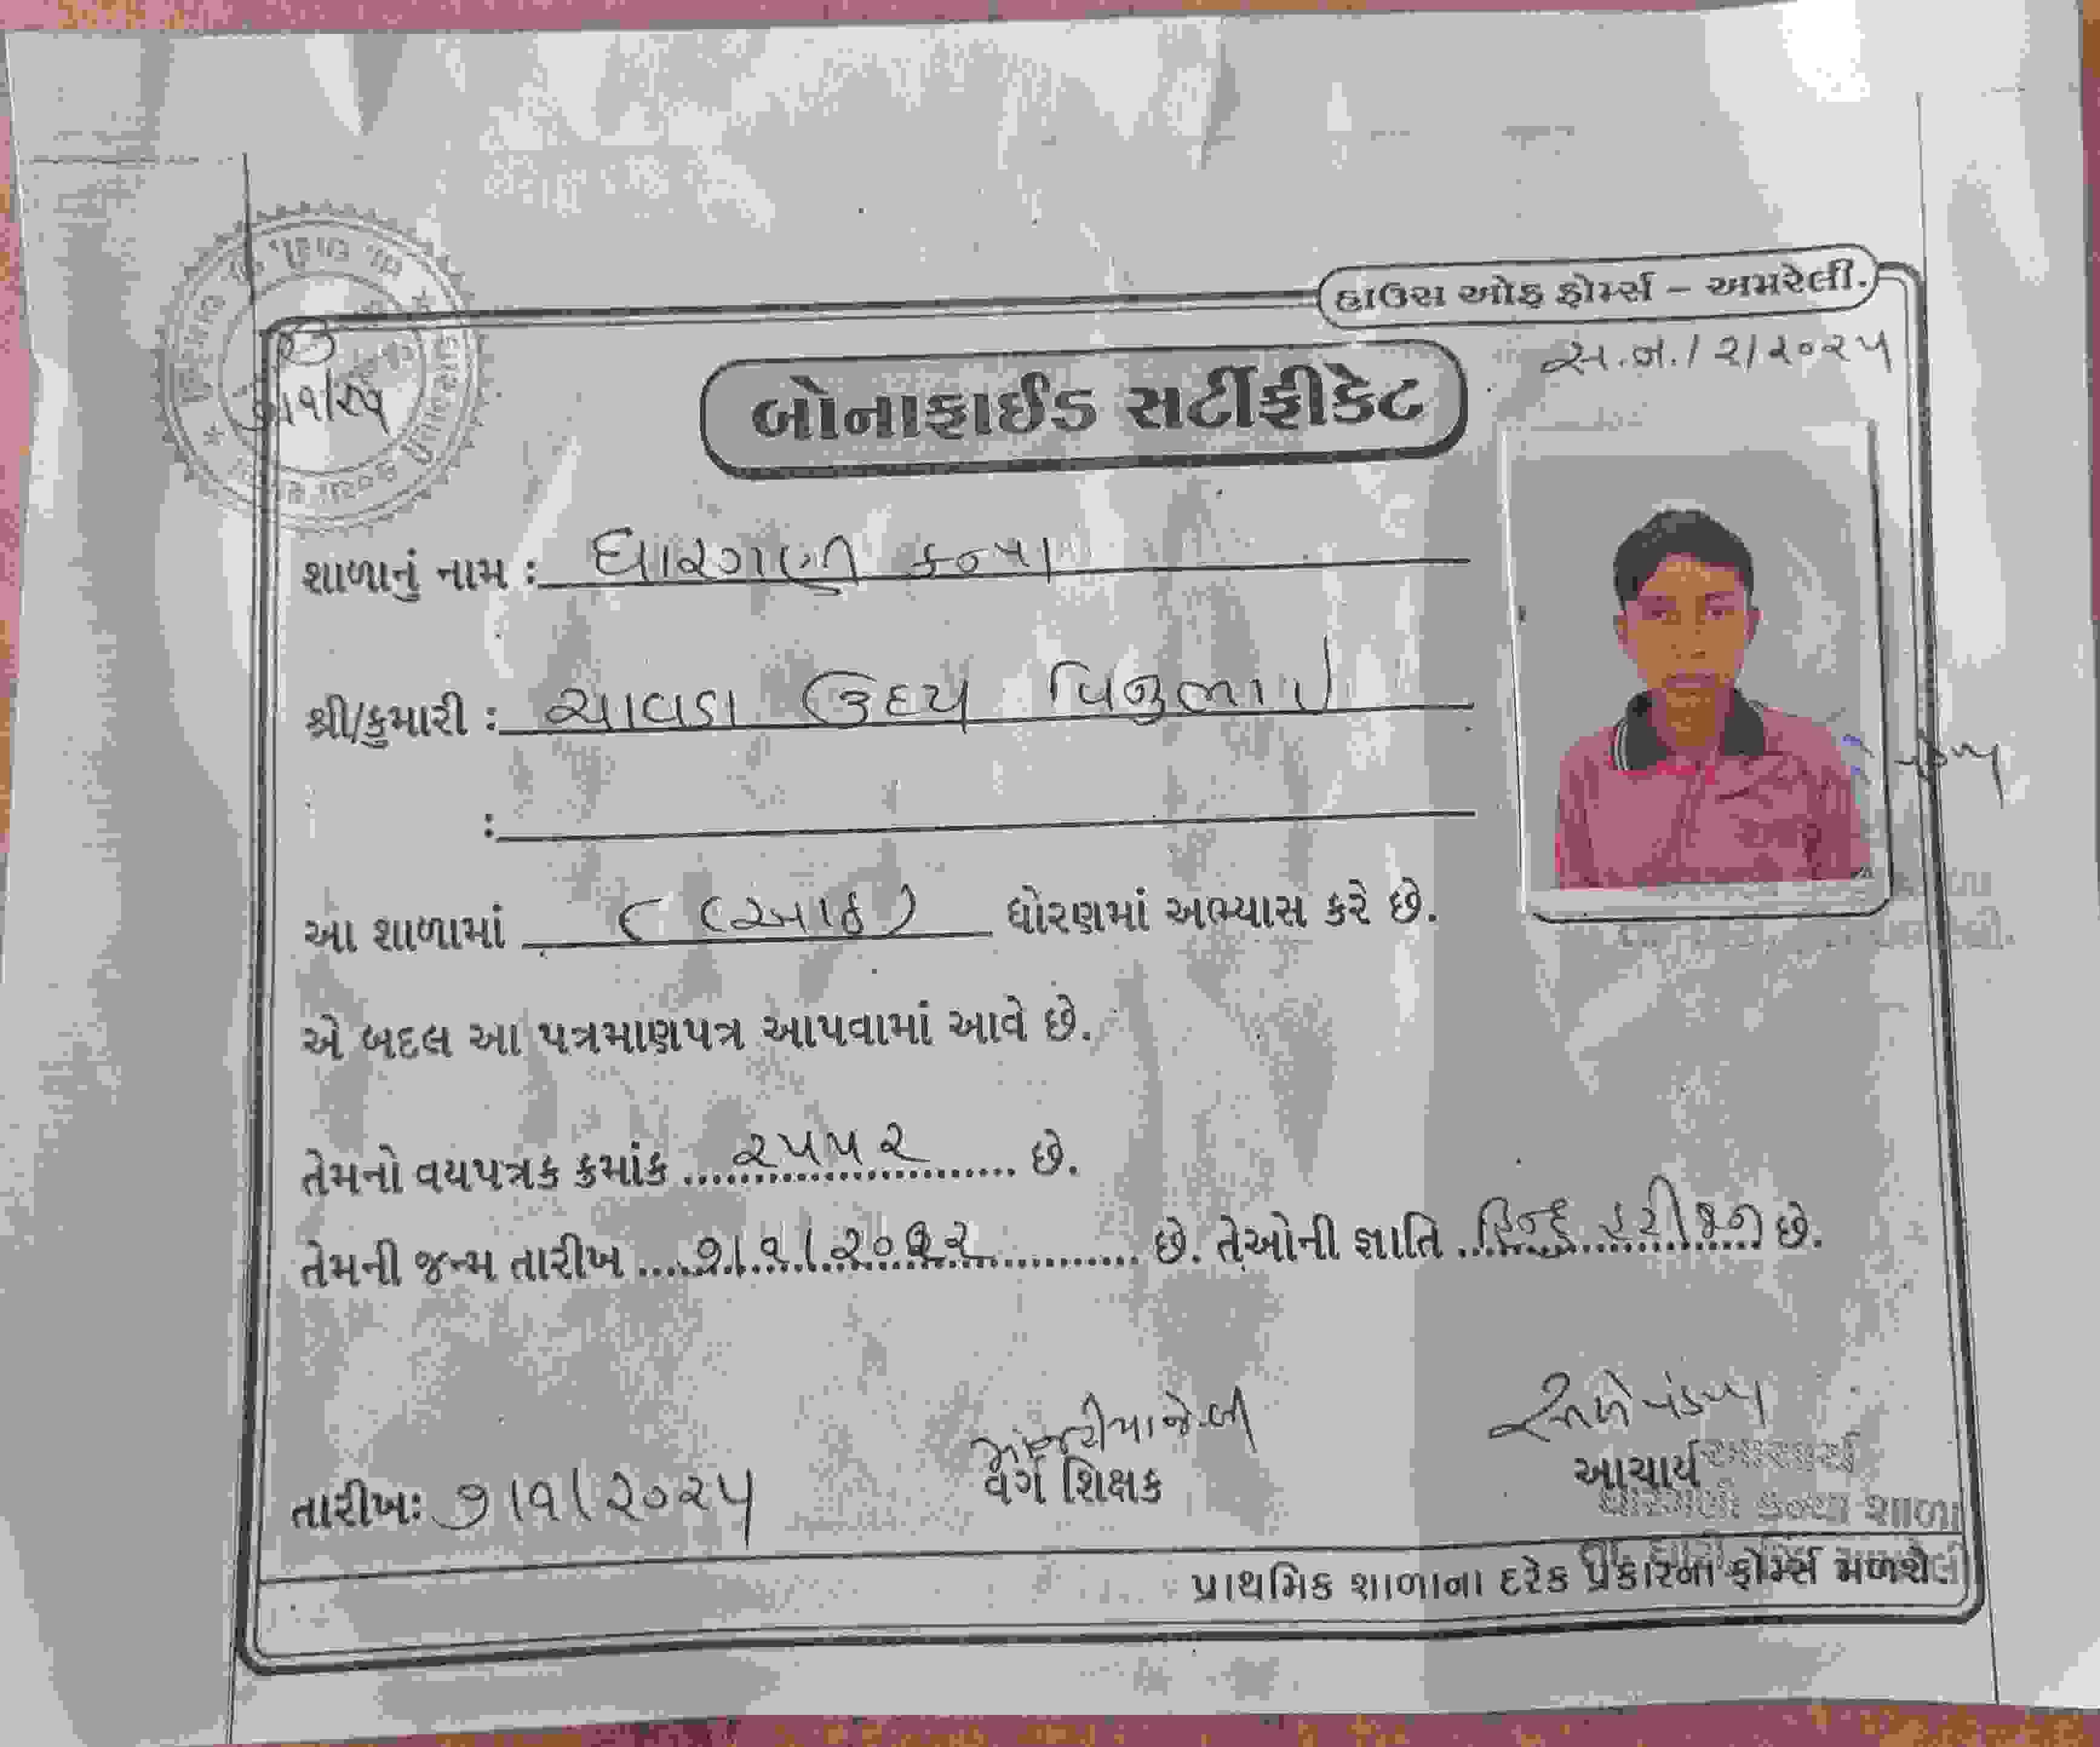 હાઉસ ઓફ ફોર્મ્સ – અમરેલી.
સ.જ./૨/૨૦૨૫
૭/૧/૨૫
બોનાફાઈડ સર્ટીફીકેટ
શાળાનું નામ : ધારગણી કન્યા
શ્રી/કુમારી : ચાવડા ઉદય વિનુભાઈ
:
આ શાળામાં ૮ (આઠ) ધોરણમાં અભ્યાસ કરે છે.
એ બદલ આ પત્રમાણપત્ર આપવામાં આવે છે.
તેમનો વયપત્રક ક્રમાંક ૨૫૫૨ છે.
તેમની જન્મ તારીખ છે. તેઓની જ્ઞાતિ હિન્દુ હરીજન છે.
તારીખઃ ૭/૧/૨૦૨૫
વર્ગ શિક્ષક
આચાર્ય
આચાર્ય
ધારગણી કન્યા શાળા
પ્રાથમિક શાળાના દરેક પ્રકારના ફોર્મ્સ મળશે